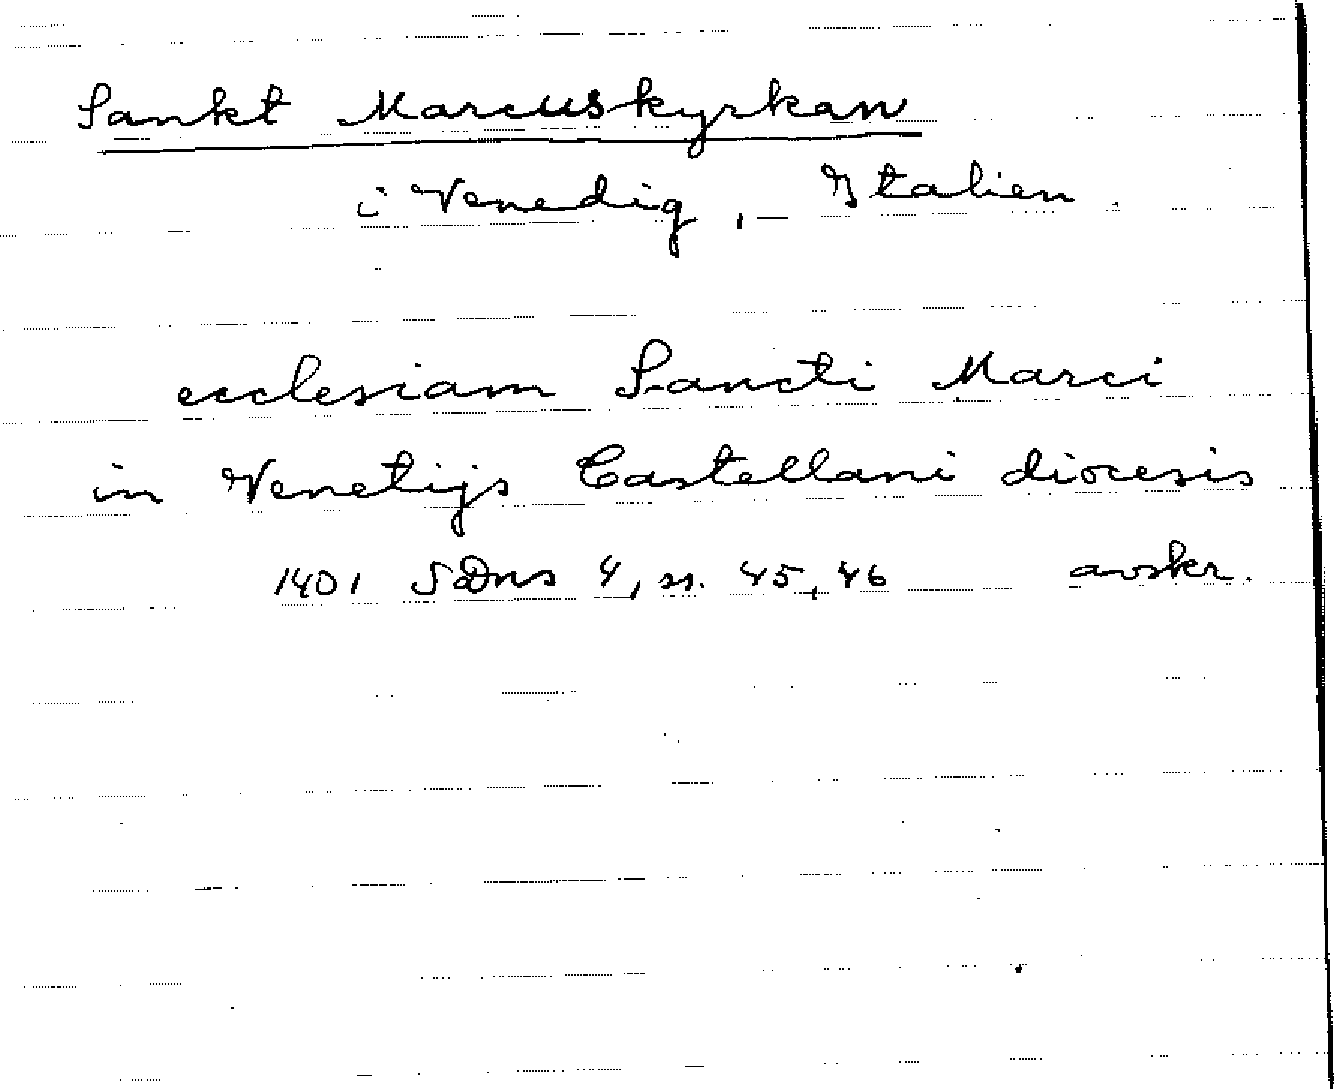 Sankt Marcuskyrkan
i Venedig, Italien.
ecclesiam Sancti Marci
in Venetijs Castellani diocesis
1401 SDns 4, ss. 45, 46 avskr.